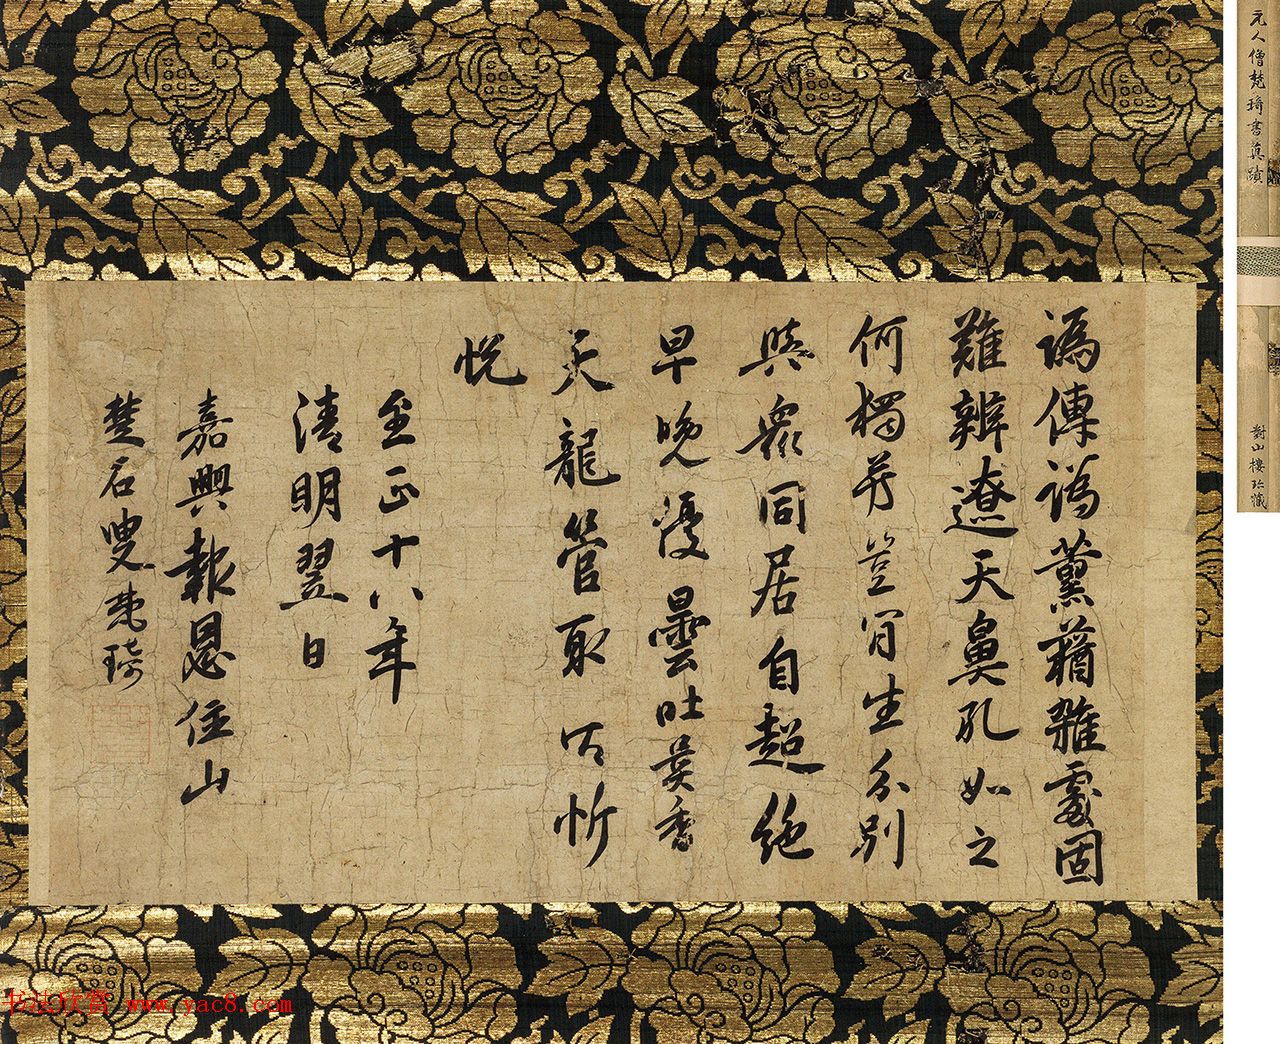 譌傳譌薰蕕雜處固
難辨遼天鼻孔如之
何豈肎生分別
與眾同居自超絕
早晚優曇吐異香
天龍管取忻
悅
至正十八年
清明翌日
嘉興報恩住山
楚石叟梵琦
元人僧梵琦書真蹟
對山樓珍藏
书法欣赏 www.yac8.com